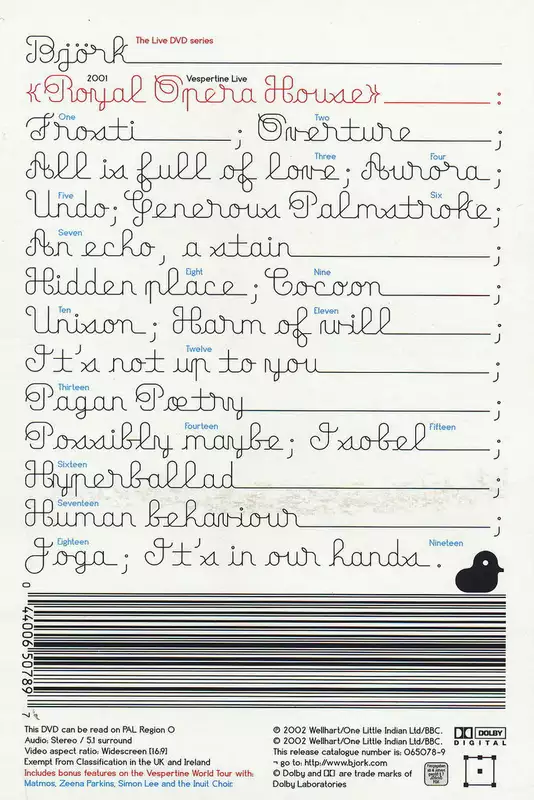 Björk The Live DVD series
2001 Vespertine Live
«Royal Opera House» :
One Two
Frosti ; Overture ;
Three Four
All is full of love; Aurora ;
Five Six
Undo; Generous Palmstroke;
Seven
An echo, a stain ;
Eight Nine
Hidden place ; Cocoon ;
Ten Eleven
Unison ; Harm of will ;
Twelve
It's not up to you ;
Thirteen
Pagan Poetry ;
Fourteen Fifteen
Possibly maybe; Isobel ;
Sixteen
Hyperballad ;
Seventeen
Human behaviour ;
Eighteen Nineteen
Joga ; It's in our hands .
0 44006 50789 7
This DVD can be read on PAL Region 0
Audio: Stereo / 5.1 surround
Video aspect ratio: Widescreen [16:9]
Exempt from Classification in the UK and Ireland
Includes bonus features on the Vespertine World Tour with:
Matmos, Zeena Parkins, Simon Lee and the Inuit Choir.
℗ 2002 Wellhart/One Little Indian Ltd/BBC.
© 2002 Wellhart/One Little Indian Ltd/BBC.
This release catalogue number is: 065078-9
¬ go to: http://www.bjork.com
© Dolby and are trade marks of
Dolby Laboratories
DOLBY
DIGITAL